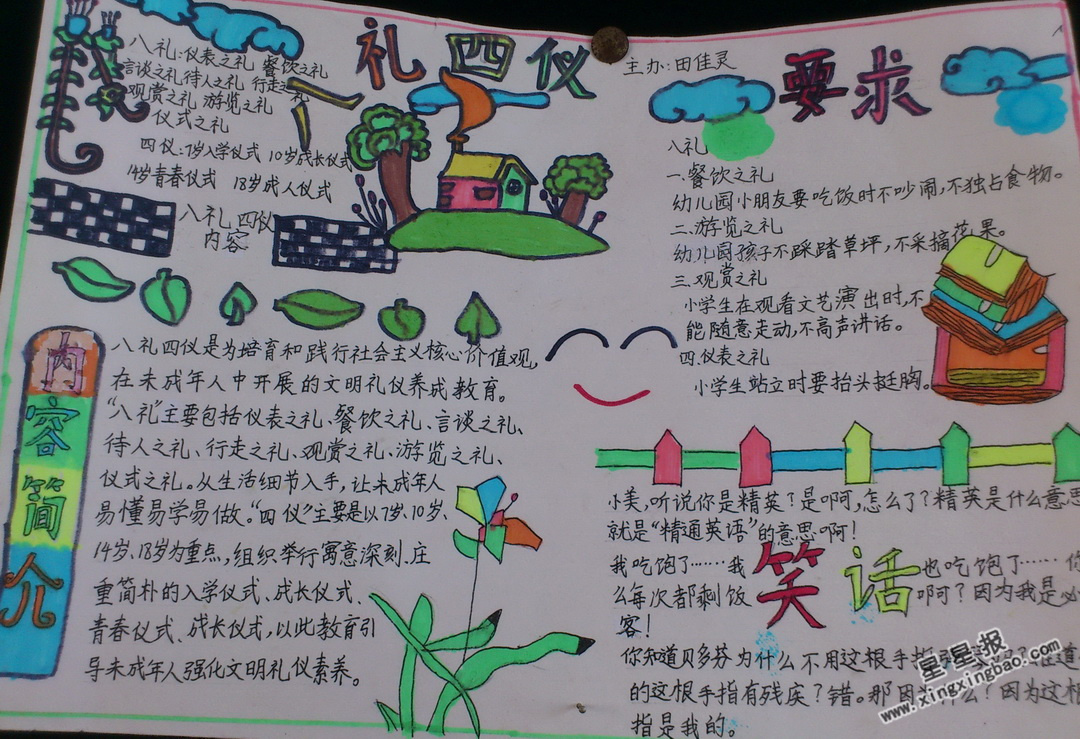 八礼四仪
八礼:仪表之礼 餐饮之礼
言谈之礼 待人之礼 行走之礼
观赏之礼 游览之礼
仪式之礼
四仪:7岁入学仪式 10岁成长仪式
14岁青春仪式 18岁成人仪式
八礼四仪
内容
内容简介
八礼四仪是为培育和践行社会主义核心价值观,
在未成年人中开展的文明礼仪养成教育。
“八礼”主要包括仪表之礼、餐饮之礼、言谈之礼、
待人之礼、行走之礼、观赏之礼、游览之礼、
仪式之礼。从生活细节入手,让未成年人
易懂易学易做。“四仪”主要是以7岁、10岁、
14岁、18岁为重点,组织举行寓意深刻、庄
重简朴的入学仪式、成长仪式、
青春仪式、成长仪式,以此教育引
导未成年人强化文明礼仪素养。
主办:田佳灵
要求
八礼
一.餐饮之礼
幼儿园小朋友要吃饭时不吵闹,不独占食物。
二.游览之礼
幼儿园孩子不踩踏草坪,不采摘花果。
三.观赏之礼
小学生在观看文艺演出时,不
能随意走动,不高声讲话。
四.仪表之礼
小学生站立时要抬头挺胸。
笑话
小美,听说你是精英?是啊,怎么了?精英是什么意思
就是“精通英语”的意思啊!
我吃饱了……我也吃饱了……你
么每次都剩饭啊?因为我是必
客!
你知道贝多芬为什么不用这根手指
的这根手指有残疾?错。那因为什么?因为这根
指是我的。
星星报
www.xingxingbao.com